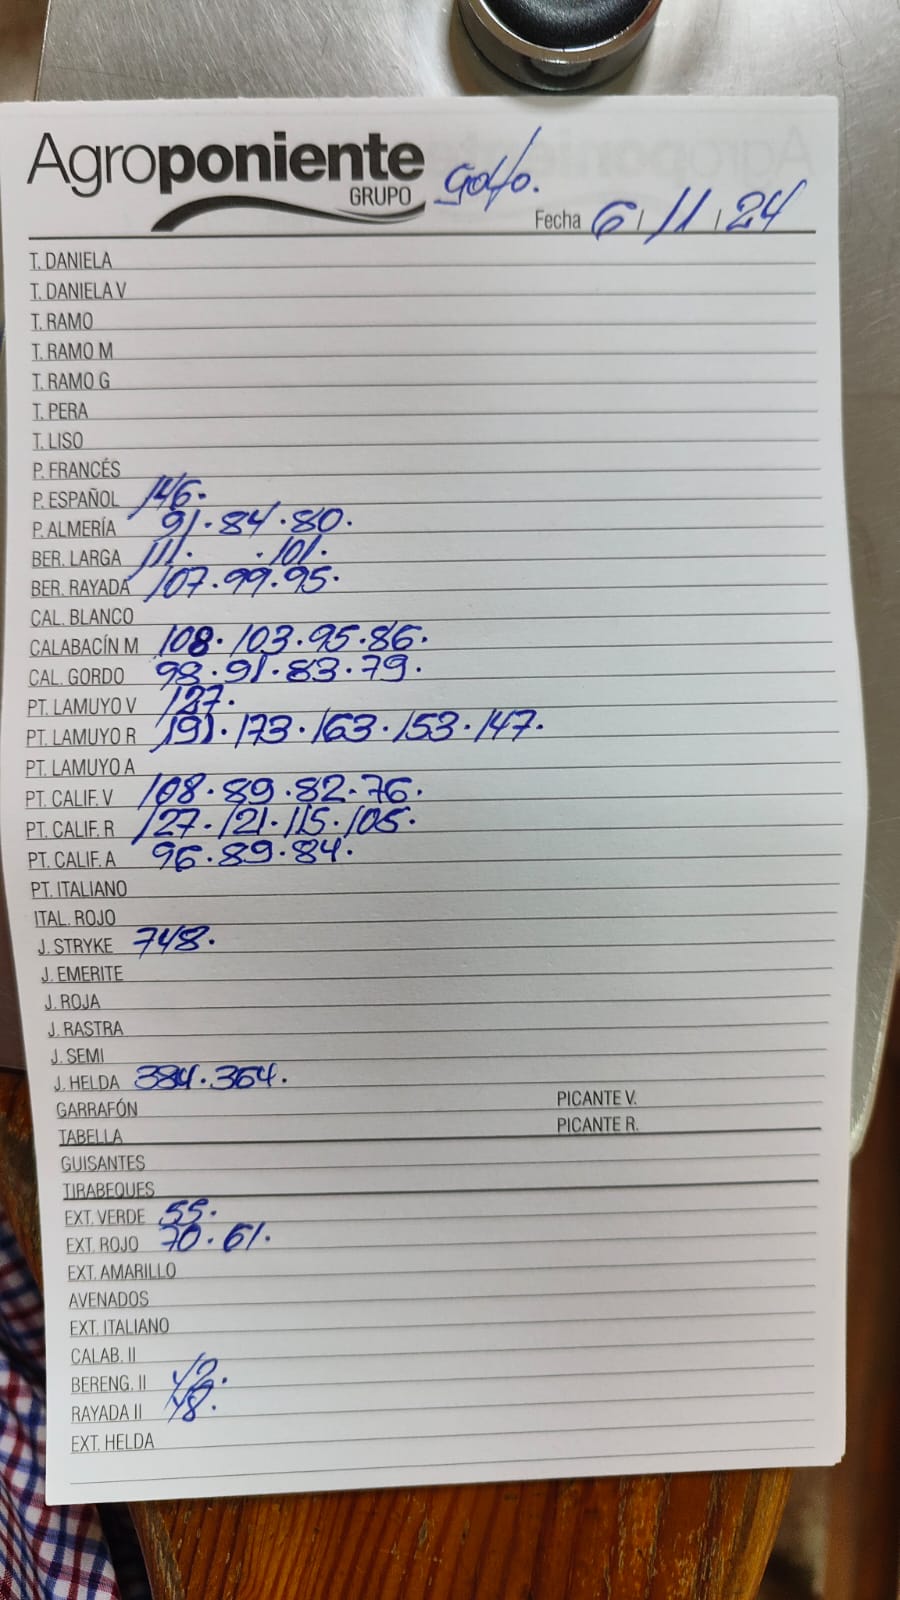 Agroponiente
GRUPO
Golfo.
Fecha 6/11/24
T. DANIELA
T. DANIELA V
T. RAMO
T. RAMO M
T. RAMO G
T. PERA
T. LISO
P. FRANCÉS
P. ESPAÑOL 146.
P. ALMERÍA 91.84.80.
BER. LARGA 111. .101.
BER. RAYADA 107.99.95.
CAL. BLANCO
CALABACÍN M 108.103.95.86.
CAL. GORDO 98.91.83.79.
PT. LAMUYO V 127.
PT. LAMUYO R 191.173.163.153.147.
PT. LAMUYO A
PT. CALIF. V 108.89.82.76.
PT. CALIF. R 127.121.115.105.
PT. CALIF. A 96.89.84.
PT. ITALIANO
ITAL. ROJO
J. STRYKE 748.
J. EMERITE
J. ROJA
J. RASTRA
J. SEMI
J. HELDA 384.364.
GARRAFÓN PICANTE V.
TABELLA PICANTE R.
GUISANTES
TIRABEQUES
EXT. VERDE 55.
EXT. ROJO 70.61.
EXT. AMARILLO
AVENADOS
EXT. ITALIANO
CALAB. II
BERENG. II
RAYADA II 48.
EXT. HELDA